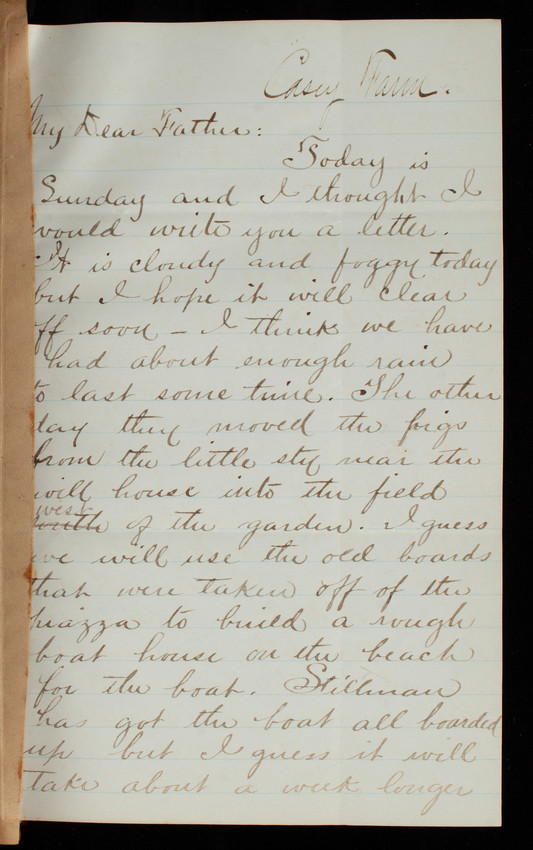 Casey Farm.
My Dear Father:
Today is
Sunday and I thought I
would write you a letter.
It is cloudy and foggy today
but I hope it will clear
off soon - I think we have
had about enough rain
to last some time. The other
day they moved the pigs
from the little sty near the
will house into the field
west
south of the garden. I guess
we will use the old boards
that were taken off of the
piazza to build a rough
boat house on the beach
for the boat. Stillman
has got the boat all boarded
up but I guess it will
take about a week longer